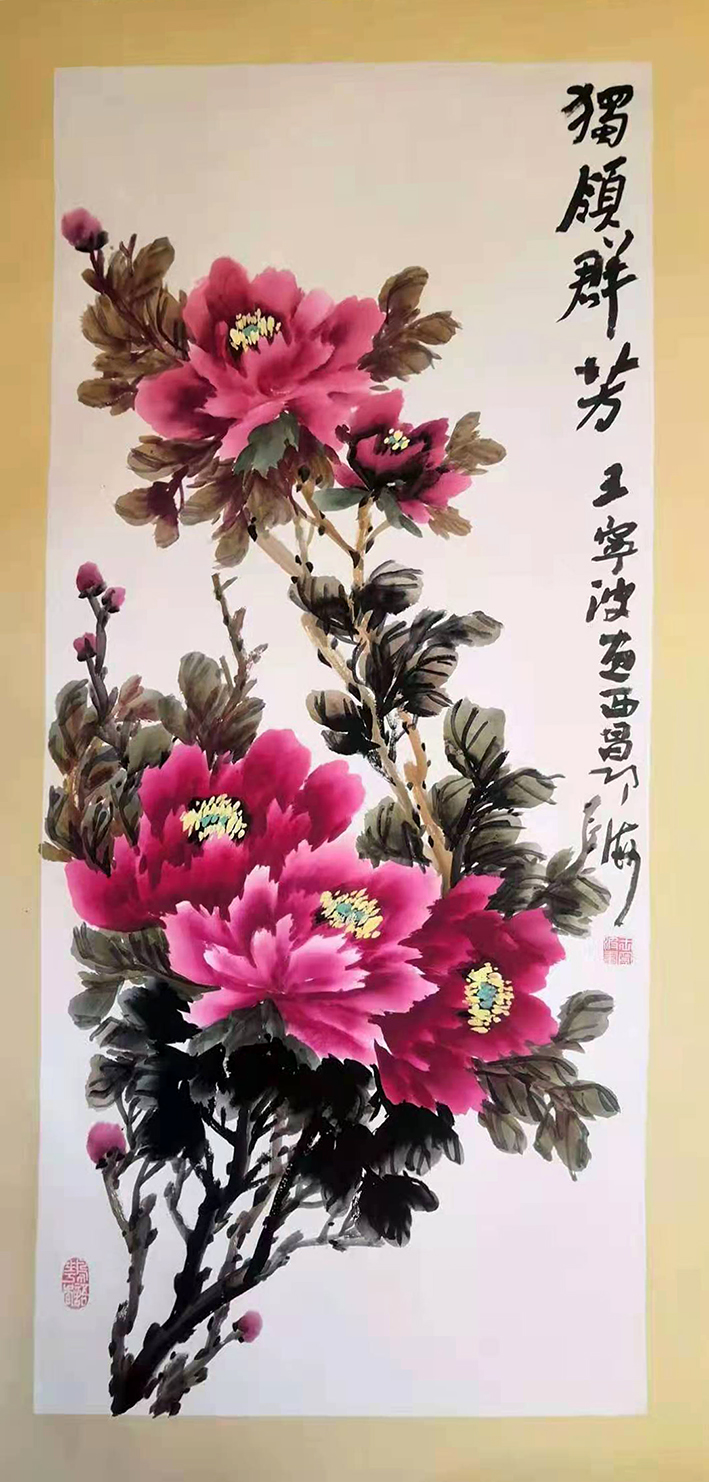 獨領群芳 王寧波画西昌邛海